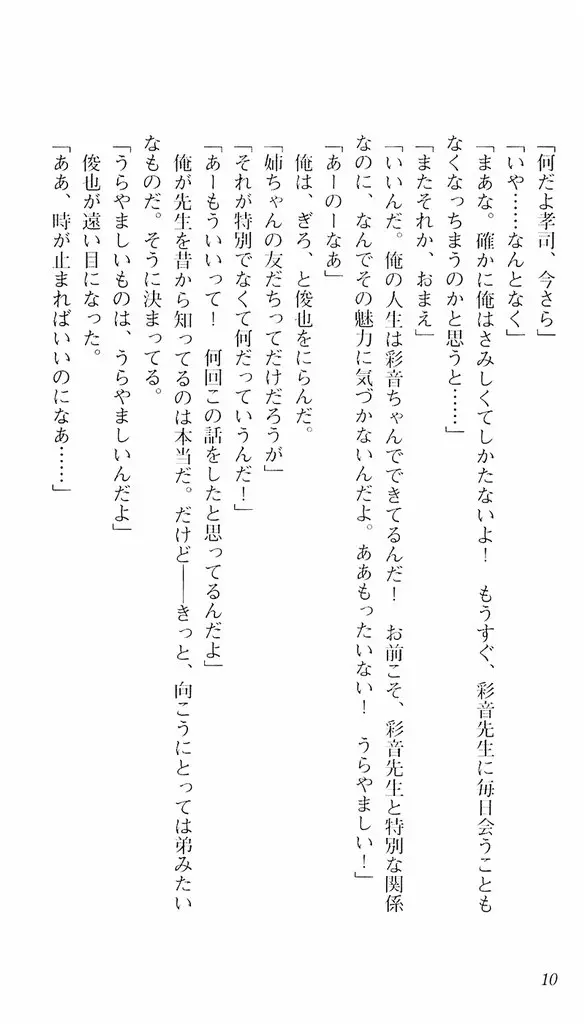 「何だよ孝司、今さら」
「いや……なんとなく」
「まあな。確かに俺はさみしくてしかたないよ！　もうすぐ、彩音先生に毎日会うことも
なくなっちまうのかと思うと……」
「またそれか、おまえ」
「いいんだ。俺の人生は彩音ちゃんでできてるんだ！　お前こそ、彩音先生と特別な関係
なのに、なんでその魅力に気づかないんだよ。ああもったいない！　うらやましい！」
「あーのーなあ」
俺は、ぎろ、と俊也をにらんだ。
「姉ちゃんの友だちってだけだろうが」
「それが特別でなくて何だっていうんだ！」
「あーもういいって！　何回この話をしたと思ってるんだよ」
俺が先生を昔から知ってるのは本当だ。だけど――きっと、向こうにとっては弟みたい
なものだ。そうに決まってる。
「うらやましいものは、うらやましいんだよ」
俊也が遠い目になった。
「ああ、時が止まればいいのになぁ……」
10